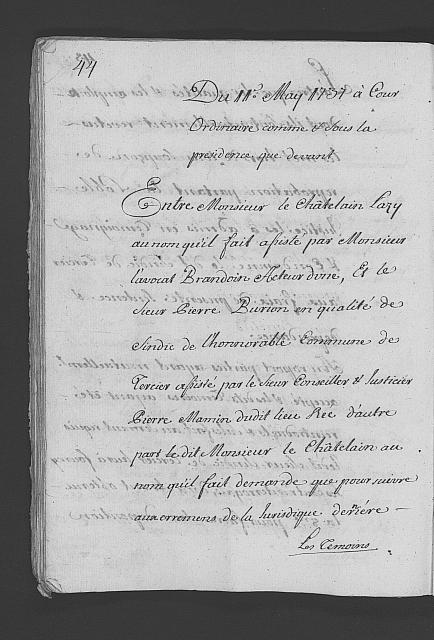 44
Du 11.e May 1757 à Cour
Ordinaire comme & sous la
presidence que devant
Entre Monsieur le Châtelain Lazy
au nom qu'il fait assisté par Monsieur
l'avocat Brandoin Acteur d'une, Et le
Sieur Pierre Burion en qualité de
Sindic de l'honnorable Commune de
Tercier assisté par le Sieur Conseiller & Justicier
Pierre Mamin dudit lieu Ree d'autre
part le dit Monsieur le Châtelain au
nom qu'il fait demande que poursuivre
aux erremens de la Juridique derniére
Les Temoins